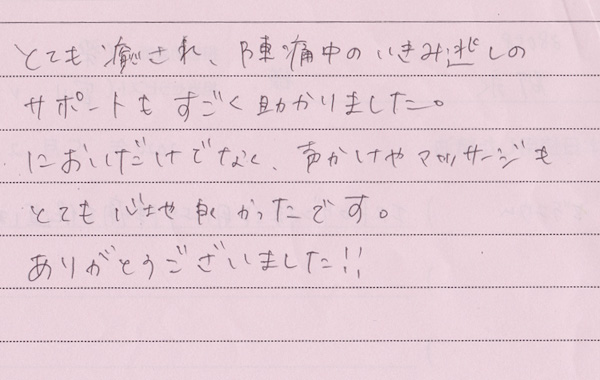 とても癒され、陣痛中のいきみ逃しの
サポートもすごく助かりました。
においだけでなく、声かけやマッサージも
とても心地良かったです。
ありがとうございました!!